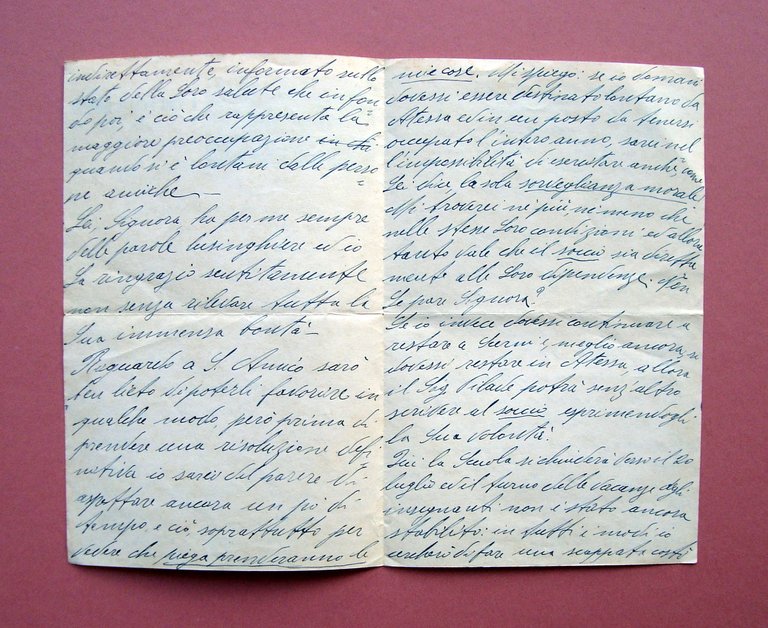 indirettamente, informato sullo
stato della Loro salute che in fon
do poi, è ciò che rappresenta la
maggiore preoccupazione
quando si è lontani dalle perso
ne amiche —
Lei, Signora ha per me sempre
delle parole lusinghiere ed io
La ringrazio sentitamente
non senza rilevare tutta la
Sua immensa bontà —
Riguardo a S. Amico sarò
ben lieto di poterli favorire in
qualche modo, però prima di
prendere una risoluzione defi
nitiva io sarei del parere di
aspettare ancora un pò di
tempo e ciò, soprattutto per
vedere che piega prenderanno le
mie cose. Mi spiego: se io domani
dovessi essere destinato lontano da
Atessa ed in un posto da tenersi
occupato l'intero anno, sarei nel
l'impossibilità di esercitare anche come
Lei dice la sola sorveglianza morale.
Mi troverei nè più, nè meno che
nelle stesse Loro condizioni ed allora
tanto vale che il soccio sia diretta
mente alle Loro dipendenze. Non
Le pare Signora?
Se io invece dovessi continuare a
restare a o, meglio ancora, se
dovessi restare in Atessa, allora
il Sig. potrà senz'altro
scrivere al soccio esprimendogli
la Sua volontà.
Qui la Scuola si chiuderà verso il 20
luglio ed il turno delle vacanze degli
insegnanti non è stato ancora
stabilito: in tutti i modi io
cercherò di fare una scappata costì